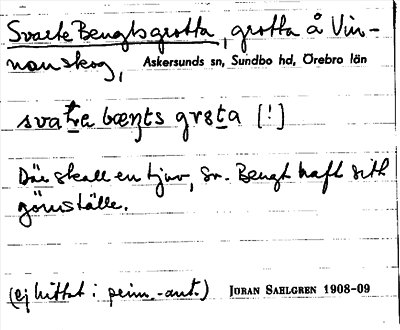 Svarte Bengtsgrotta, grotta å Vin-
nanskog, Askersunds sn, Sundbo hd, Örebro län
svaṯe bæŋts grɔta [!]
Där skall en tjuv, Sv. Bengt haft sitt
gömställe.
(ej hittat i prim.-ant.) JÖRAN SAHLGREN 1908-09